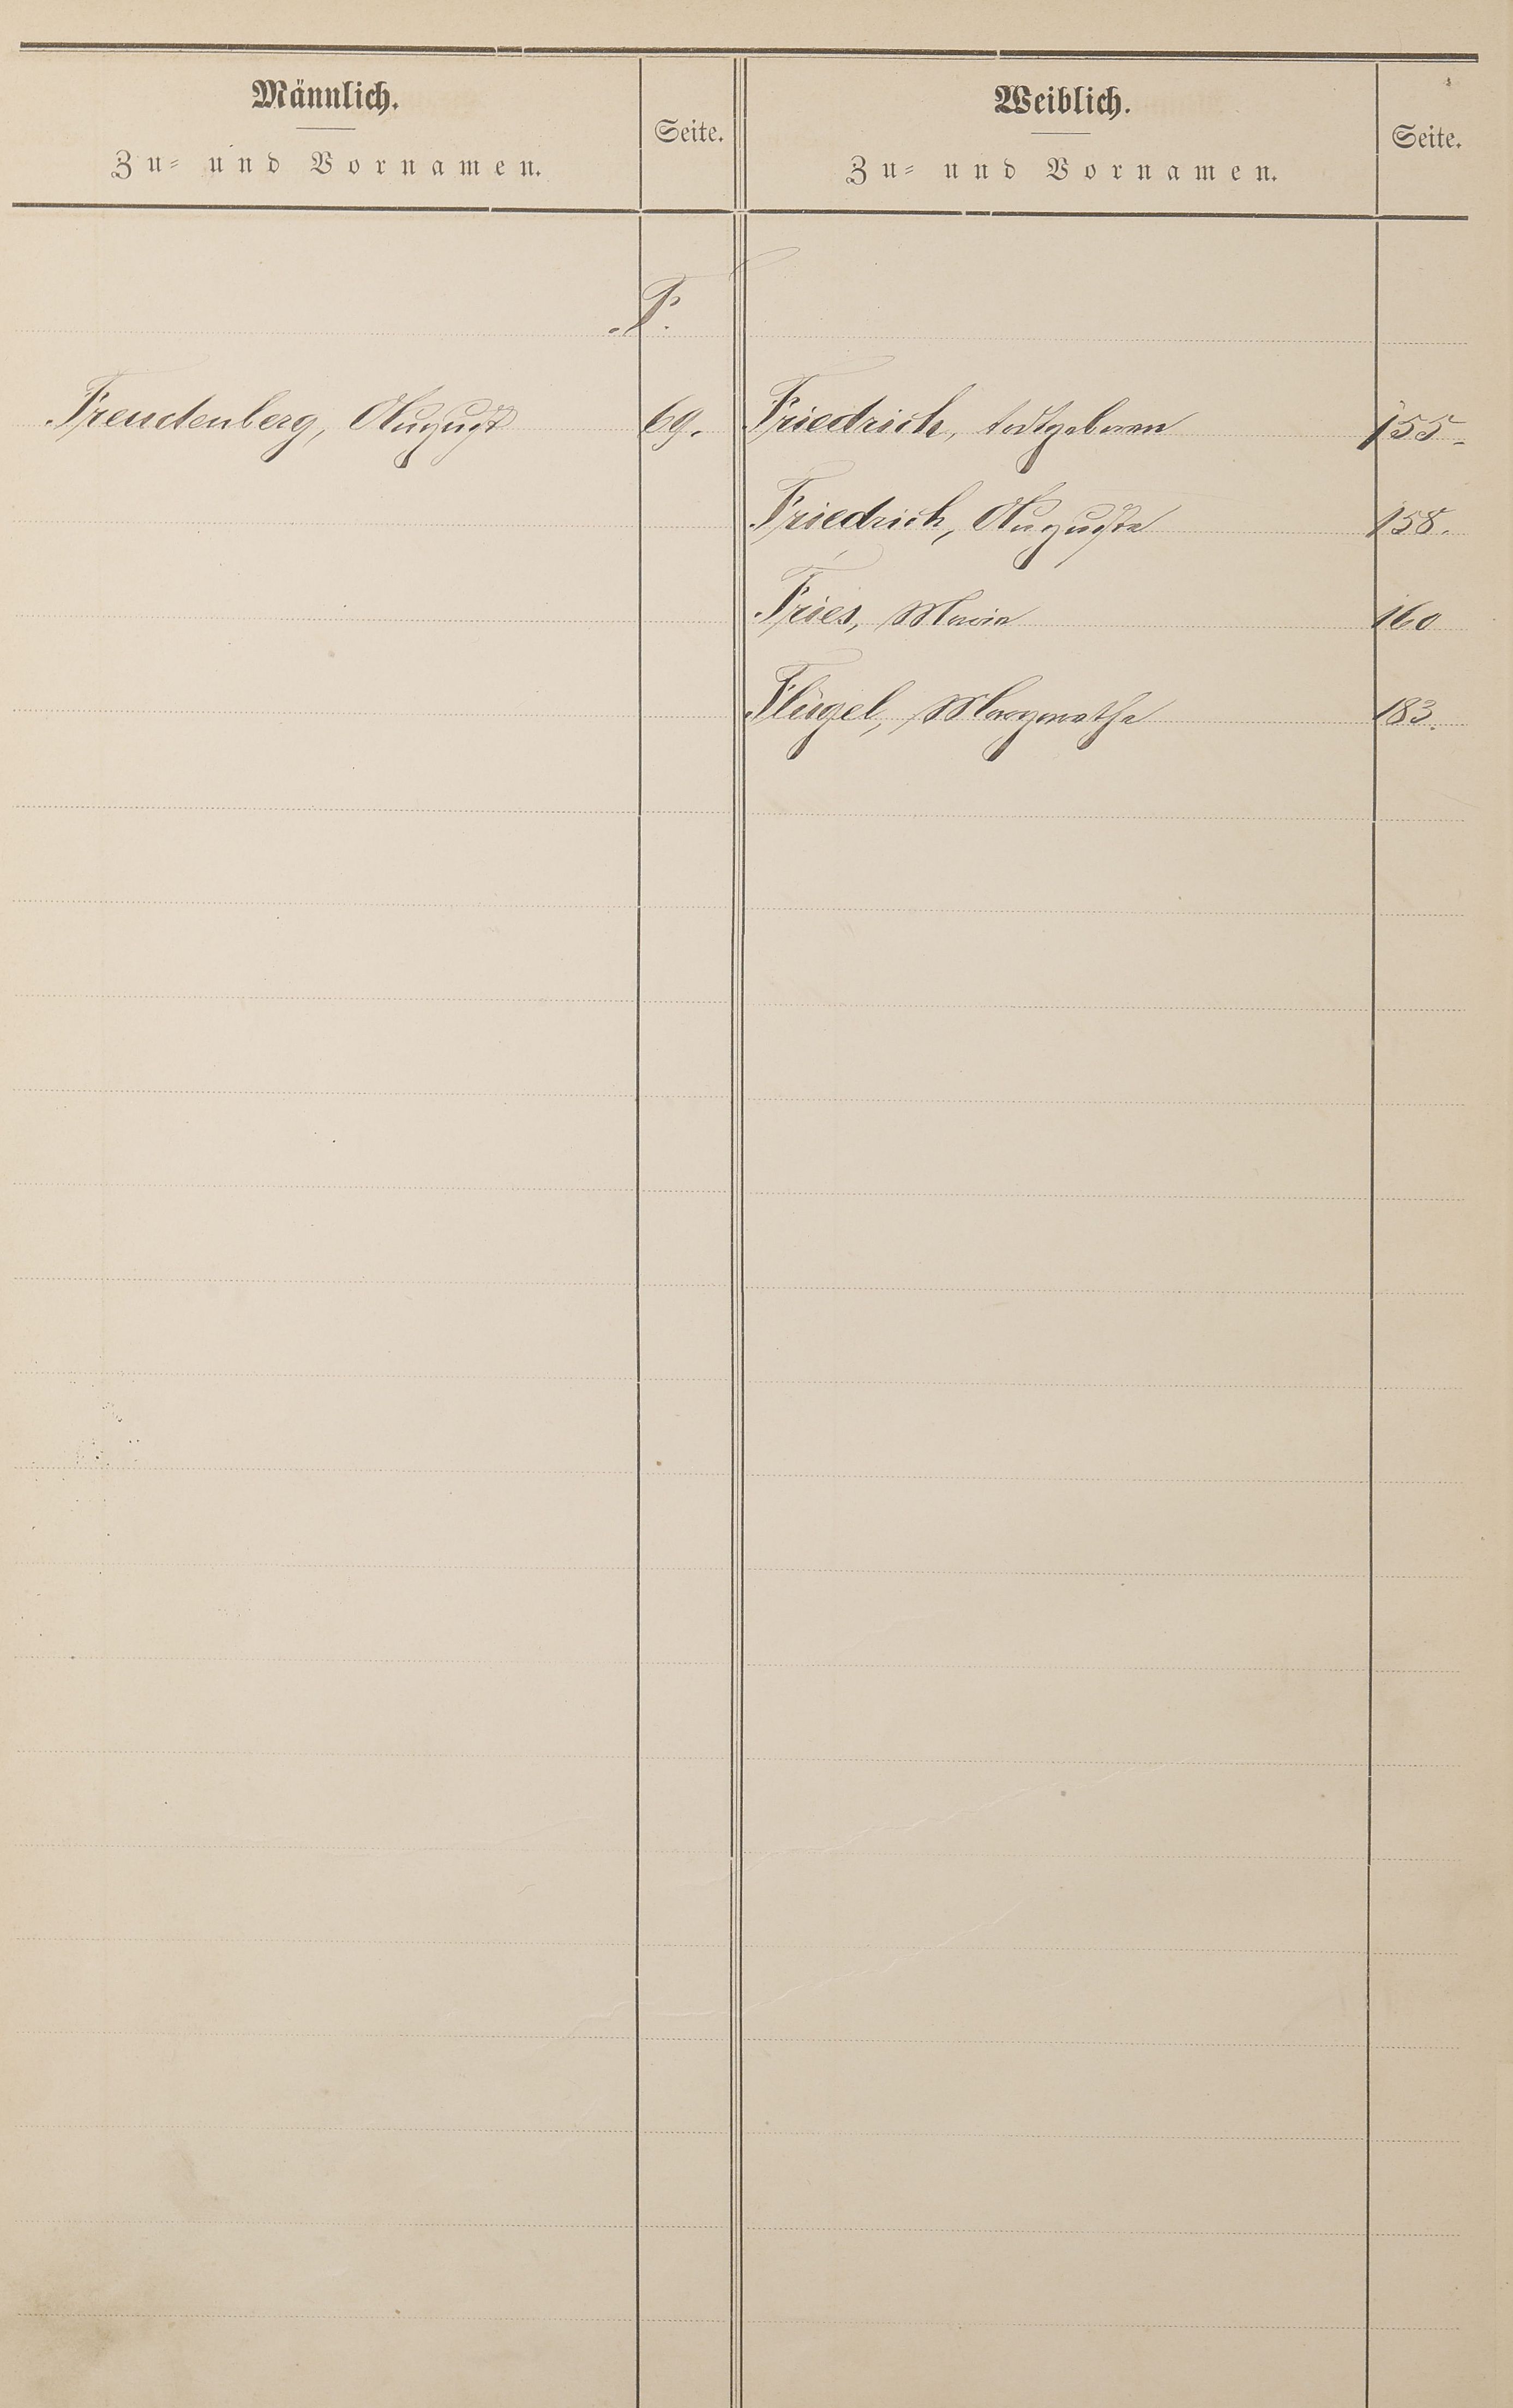 Männlich.
Zu- und Vornamen.
Seite.
Weiblich.
Zu- und Vornamen.
Seite.
F.
Freudenberg, August 69.
Friedrich, todtgeboren 155.
Friedrich, Augusta 158.
Fries, Maria 160
Flügel, Margaretha 183.